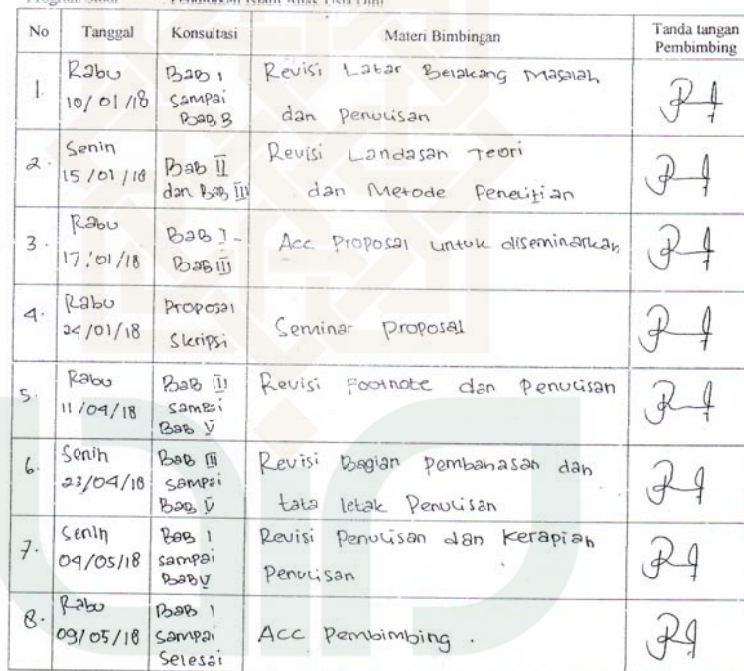 No Tanggal Konsultasi Materi Bimbingan Tanda tangan Pembimbing
1. Rabu 10/01/18 Bab 1 sampai Bab 3 Revisi Latar Belakang Masalah dan Penulisan
2. Senin 15/01/18 Bab II dan Bab III Revisi Landasan Teori dan Metode Penelitian
3. Rabu 17/01/18 Bab I - Bab III Acc Proposal untuk diseminarkan
4. Rabu 24/01/18 Proposal Skripsi Seminar Proposal
5. Rabu 11/04/18 Bab II sampai Bab V Revisi Footnote dan Penulisan
6. Senin 23/04/18 Bab III sampai Bab V Revisi Bagian Pembahasan dan tata letak Penulisan
7. Senin 04/05/18 Bab I sampai Bab V Revisi Penulisan dan Kerapian Penulisan
8. Rabu 09/05/18 Bab 1 sampai Selesai Acc Pembimbing.